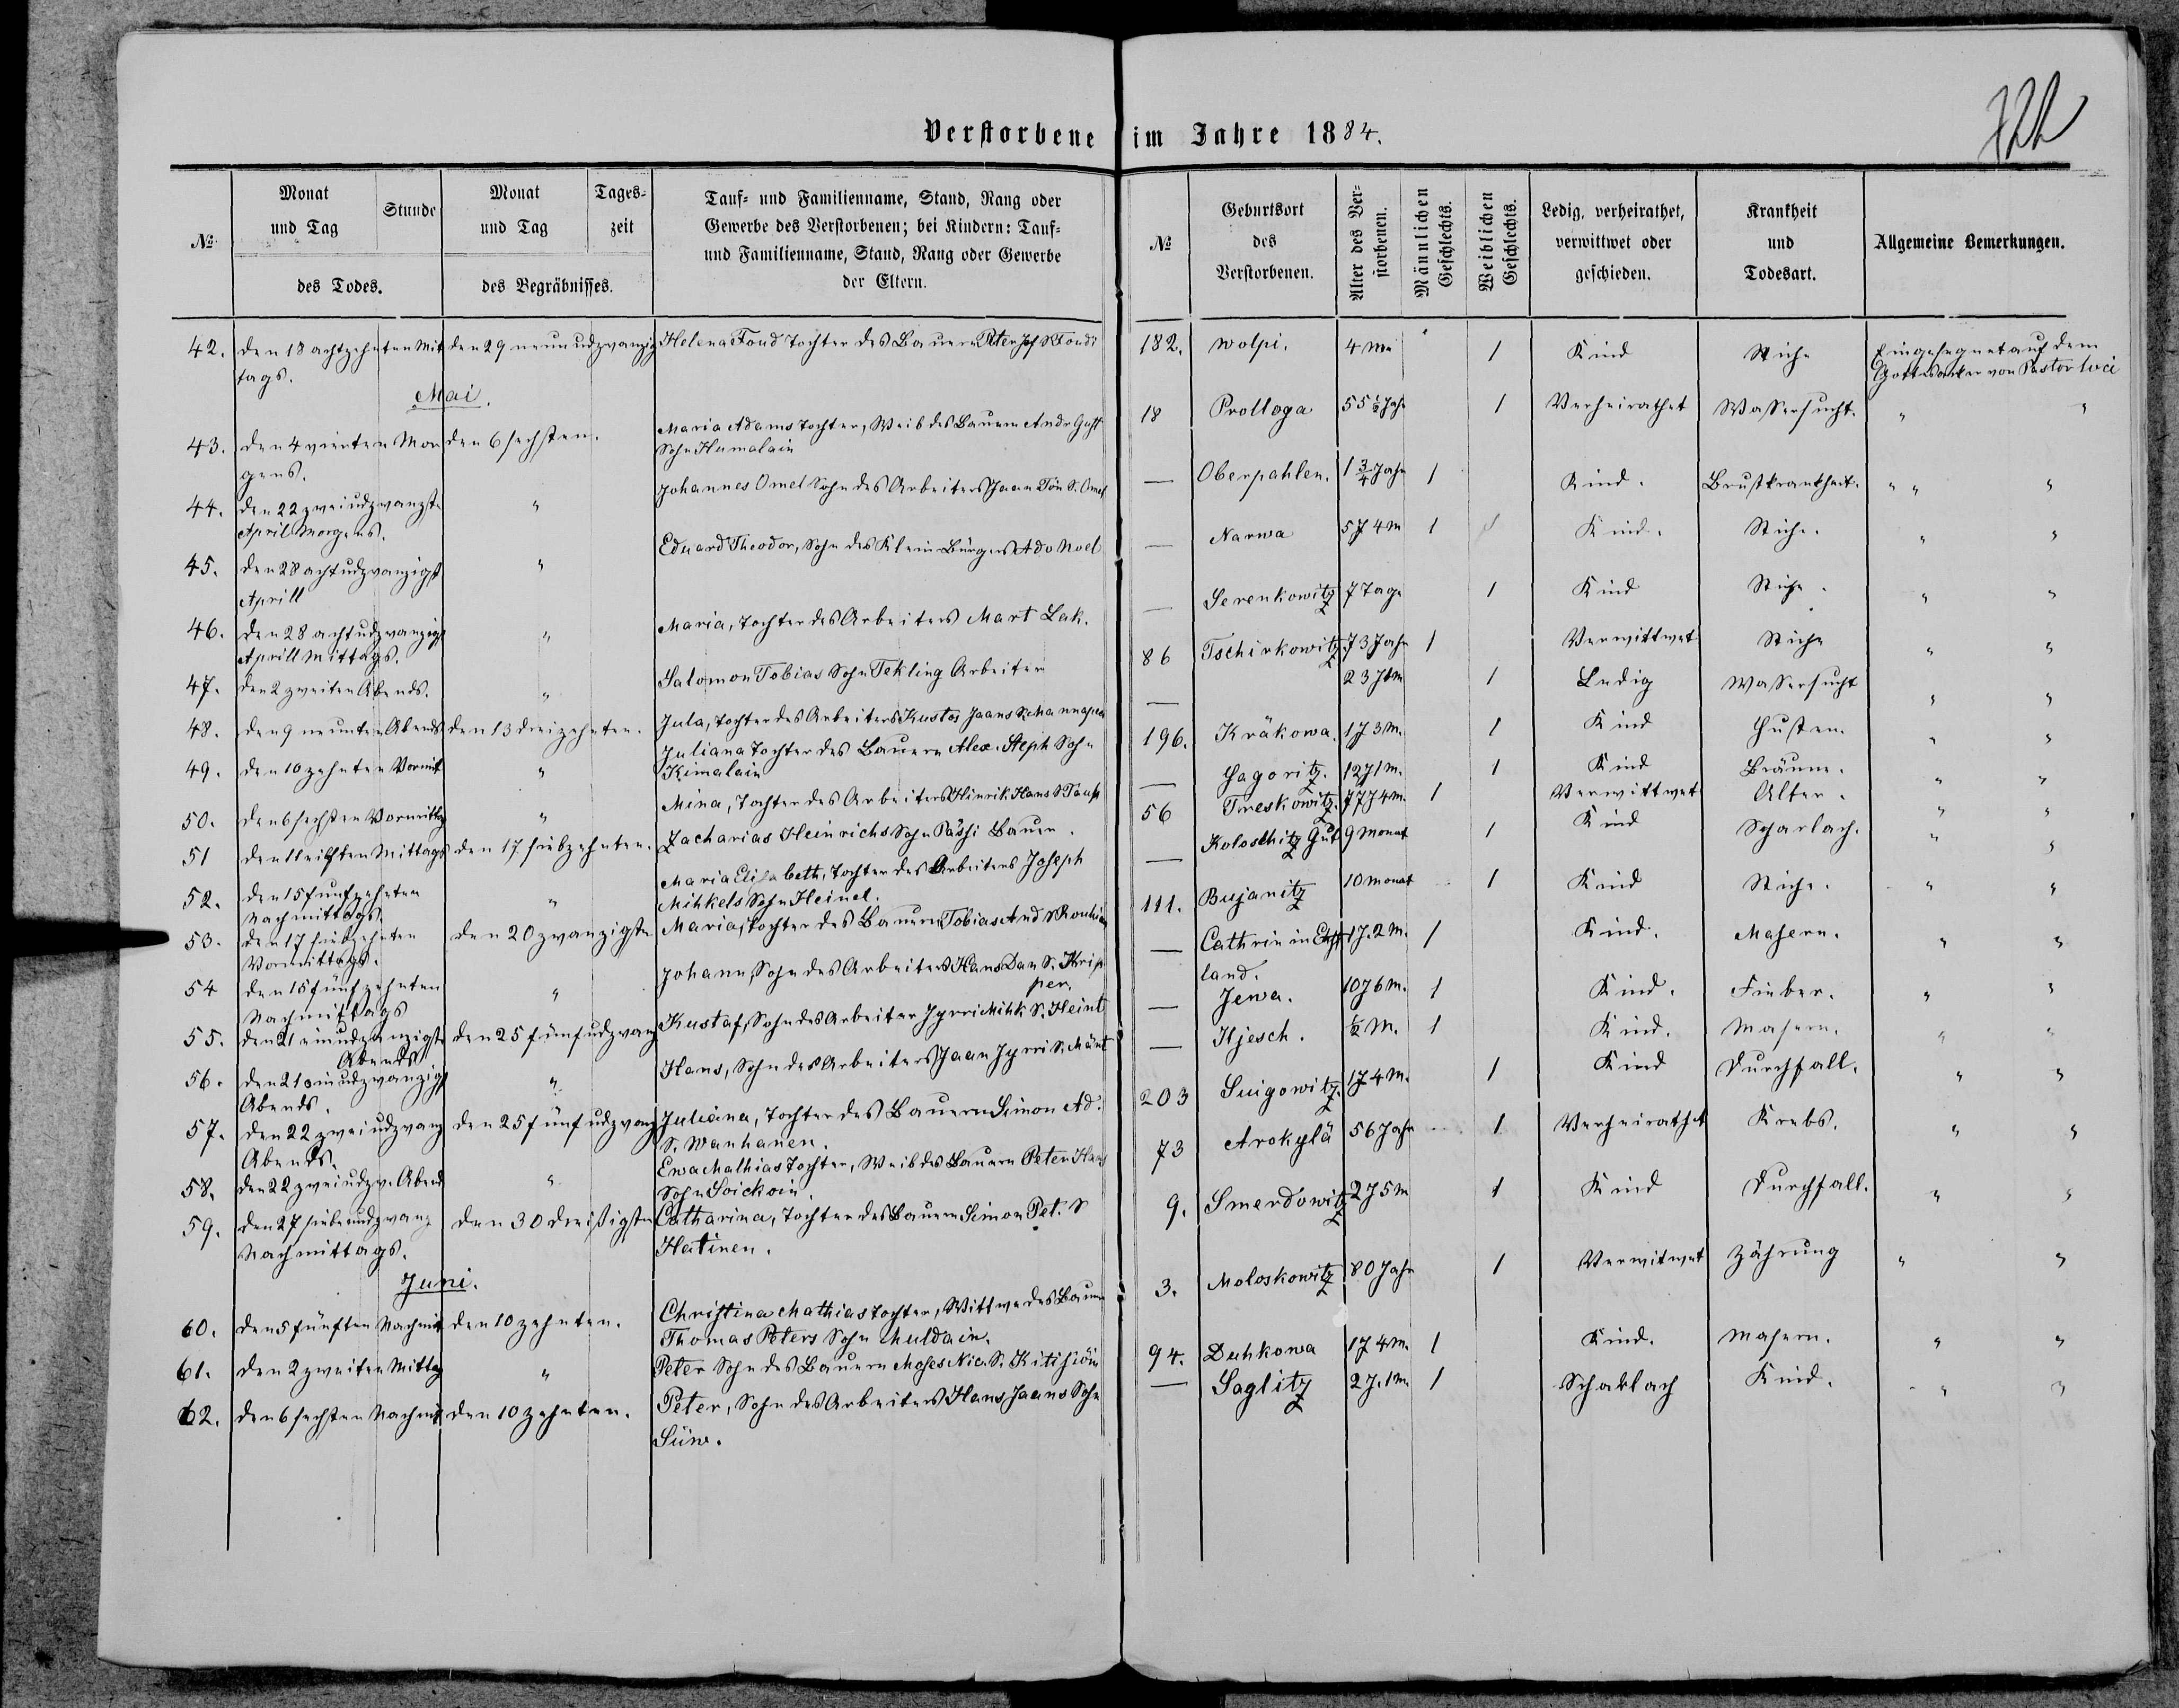 Verstorbene im Jahre 1884.
722
№
Monat und Tag
Stunde
des Todes.
Monat und Tag
Tages-zeit
des Begräbnisses.
Tauf- und Familienname, Stand, Rang oder
Gewerbe des Verstorbenen; bei Kindern: Tauf-
und Familienname, Stand, Rang oder Gewerbe
der Eltern.
№
Geburtsort des Verstorbenen.
Alter des Verstorbenen.
Männlichen Geschlechts.
Weiblichen Geschlechts.
Ledig, verheirathet, verwittwet oder geschieden.
Krankheit und Todesart.
Allgemeine Bemerkungen.
42. den 18 achtzehnten Mit den 29 neunudzwanzig Helena Tochter des Bauern Peter Jos S
tags.
182. Wolpi. 4 1 Kind Stiche Eingesegnet auf dem
Gottesacker von Pastor loci
Mai.
43. den 4 vierten Mor den 6 sechsten. Maria Adams Tochter, Weib des Bauern Andr Gust
gens. Sohn Humalain
18 Prologa 55 ½ Jahr 1 Verheirathet Wassersucht. " "
44. den 22 zweiudzwanzst. " Johannes Omel Sohn des Arbeiters Jaan Tön S. Omel
April Morgens.
— Oberpahlen. 1 ¾ Jahr 1 Kind. Brustkrankheit. " " "
45. den 28 achtudzwanzigst " Eduard Theodor, Sohn des Klein Bürgers Ado Noel
Aprill
— Narwa 5 J 4 M 1 Kind. Stiche. " "
46. den 28 achtudzwanzigst " Maria, Tochter des Arbeiters Mart Lak.
Aprill Mittags.
— Serenkowitz 7 Tage 1 Kind Stiche. " "
47. den 2 zweiten Abends. " Salomon Tobias Sohn Tekling Arbeiter
86 Tschirkowitz. 73 Jahr 1 Verwittwet Stiche " "
48. den 9 neunten Abends den 13 dreizehnten. Jula, Tochter des Arbeiters Kustas Jaans S.
— 1 Ledig Wassersucht " "
49. den 10 zehnten Vormit " Juliana Tochter des Bauern Alex. Steph Sohn
Kimalain
196. Kräkowa. 1 J 3 M. 1 Kind Husten. " "
50. den 6 sechsten Vormittag " Mina, Tochter des Arbeiters Hinrik Hans S
— Gagoritz. 12 J 1 M. 1 Kind Bräune. " "
51 den 11 eilften Mittags den 17 siebzehnten. Zacharias Heinrichs Sohn Pässi Bauer.
56 Treskowitz. 77 J 4 M. 1 Verwittwet Alter. " "
52. den 15 funfzehnten " Maria Elisabeth, Tochter des Arbeiters Joseph
Nachmittags. Mihkels Sohn Heinel.
— Koloschitz Gut 9 Monat 1 Kind Scharlach. " "
53. den 17 siebzehnten den 20 zwanzigste Maria, Tochter des Bauern Tobias And S
Vormittags.
111. Bujanitz 10 Monat 1 Kind Stiche. " "
54 den 15 fünfzehnten " Johann, Sohn des Arbeiters Hans Dan S. Krip
Nachmittags per.
— Cathrin in Ehst 1 J. 2 M. 1 Kind. Masern. " "
land.
55. den 21 einudzwanzigste den 25 fünfudzwanz Kustaf, Sohn des Arbeiter Jyrri Mihk S. Heint
Abends
— Jewa. 10 J 6 M. 1 Kind. Fieber. " "
56. den 21 einudzwanzigst " Hans, Sohn des Arbeiters Jaan Jyrri S. Mänt
Abends.
— Iljesch. ½ M. 1 Kind. Masern. " "
57. den 22 zweiudzwanz den 25 fünfudzwanz Juliana, Tochter des Bauern Simon Ad.
Abends. S. Wanhanen.
203 Suigowitz. 1 J 4 M. 1 Kind Durchfall. " "
58. den 22 zweiudzw. Abend " Ewa Mathias Tochter, Weib des Bauern Peter Hans
Sohn Soickoin.
73 Arokylä 56 Jahr 1 Verheirathet Krebs. " "
59. den 27 siebenudzwanz den 30 dreißigsten Catharina, Tochter des Bauern Simon Pet. S
Nachmittags. Hatinen.
9. Smerdowitz 2 J 5 M 1 Kind Durchfall. " "
Juni.
60. den 5 fünften Nachmit den 10 zehnten. Christina Mathias Tochter, Wittwe des Bauern
Thomas Peters Sohn Muldain.
3. Moloskowitz 80 Jahr 1 Verwitwet Zährung " "
61. den 2 zweiten Mittag " Peter Sohn des Bauern Moses Nic. S.
94. Duhkowa 1 J 4 M. 1 Kind. Masern. " "
62. den 6 sechsten Nachmit den 10 zehnten. Peter, Sohn des Arbeiters Hans Jaans Sohn
Siiw.
— Saglitz 2 J. 1 M. 1 Scharlach Kind. " "